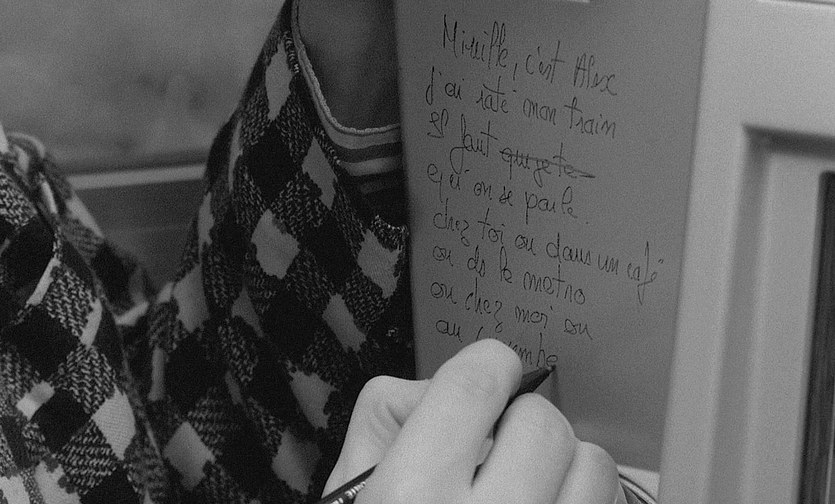 Mireille, c'est Alex
J'ai raté mon train
Il faut que je te
qu'on se parle.
chez toi ou dans un café
ou ds le metro
ou chez moi ou
au